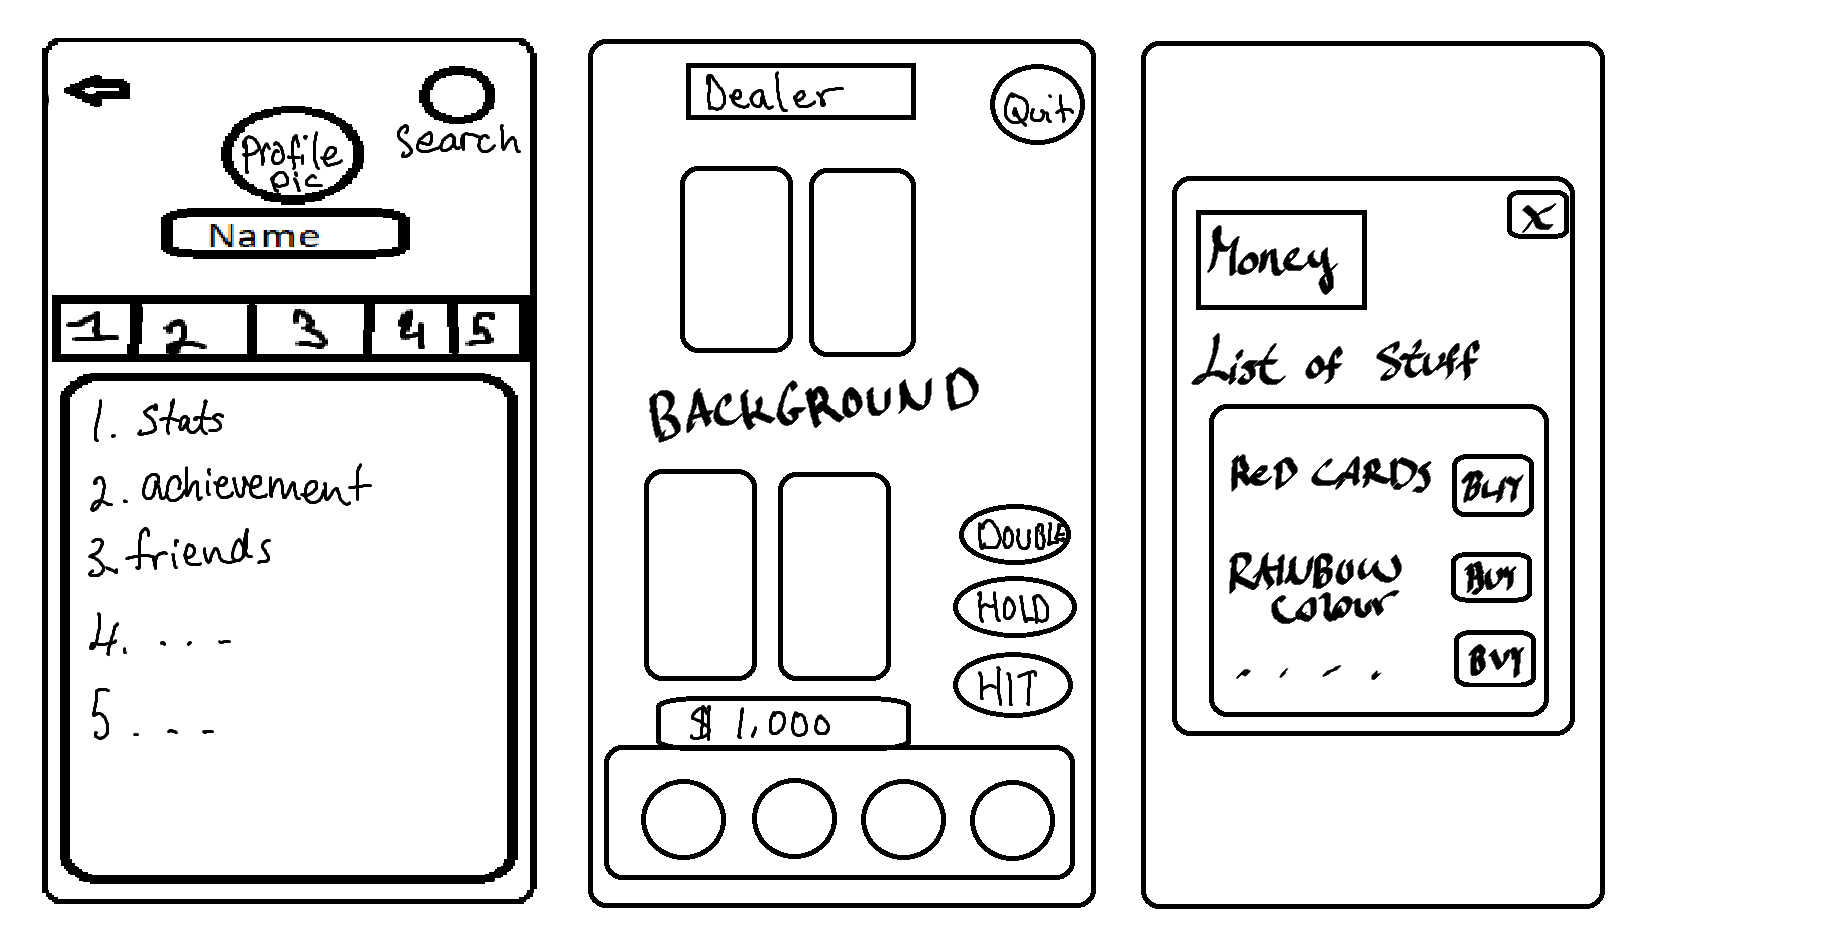 Search
Profile
pic
Name
1 2 3 4 5
1. Stats
2. achievement
3. friends
4. . . -
5 . - -
Dealer
Quit
BACKGROUND
DOUBLE
HOLD
HIT
$ 1,000
X
Money
List of Stuff
ReD CARDS BUY
RAINBOW BUY
Colour
. . . . BUY